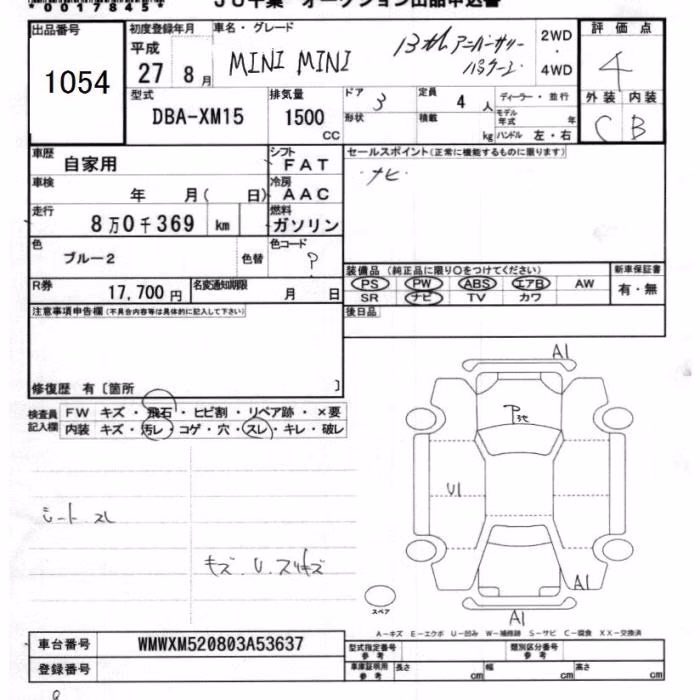 *0017845*
JU千葉 オークション出品申込書
出品番号
1054
初度登録年月
平成
27 8月
車名・グレード
MINI MINI
2WD
・
4WD
評価点
4
外装 内装
C B
型式
DBA-XM15
排気量
1500
CC
ドア
3
形状
定員
4 人
積載
kg
ディーラー・並行
モデル年式 年
ハンドル 左・右
車歴
自家用
シフト
FAT
車検
年 月( 日)
冷房
AAC
走行
8万0千369 km
燃料
ガソリン
色
ブルー2
色替
色コード
?
R券
17,700 円
名変通知期限
月 日
セールスポイント(正常に機能するものに限ります)
・ナビ・
装備品 (純正品に限り〇をつけてください)
PS PW ABS エアB AW
SR ナビ TV カワ
新車保証書
有・無
後日品
注意事項申告欄(不具合内容等は具体的に記入して下さい)
修復歴 有〔箇所 〕
検査員
記入欄
FW キズ・飛石・ヒビ割・リペア跡・×要
内装 キズ・汚レ・コゲ・穴・スレ・キレ・破レ
シート スレ
キズ・U・スリキズ
A1
U1
A1
A1
スペア
A−キズ E−エクボ U−凹み W−補修跡 S−サビ C−腐食 XX−交換済
車台番号
WMWXM520803A53637
登録番号
型式指定番号
参考
類別区分番号
参考
車庫証明用
参考
長さ cm
幅 cm
高さ cm